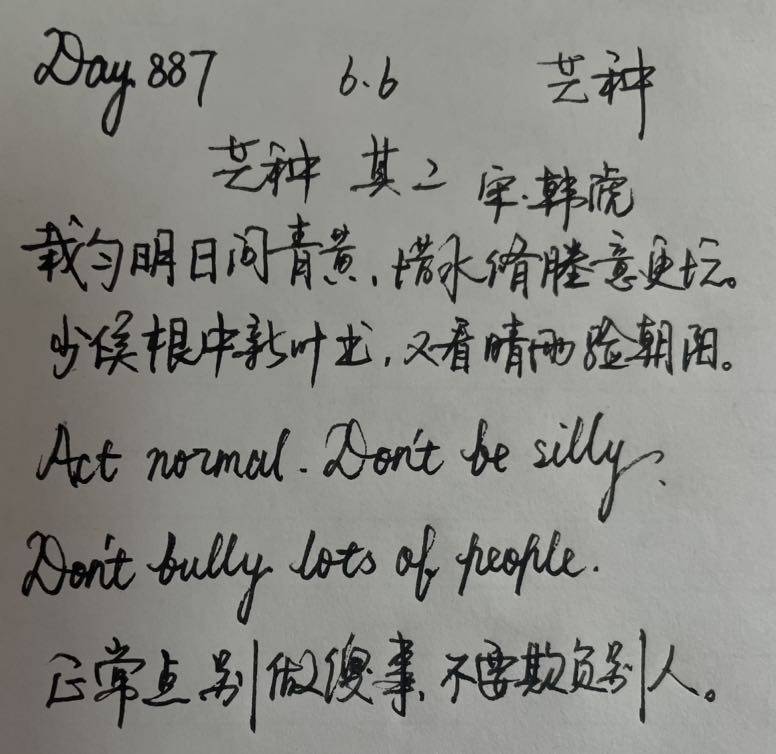 Day 887 6.6 芒种
芒种 其二 宋·韩虎
栽匀明日问青黄,惜水脩塍意更忙。
少候根中新叶出,又看晴雨验朝阳。
Act normal. Don't be silly.
Don't bully lots of people.
正常点别做傻事,不要欺负别人。